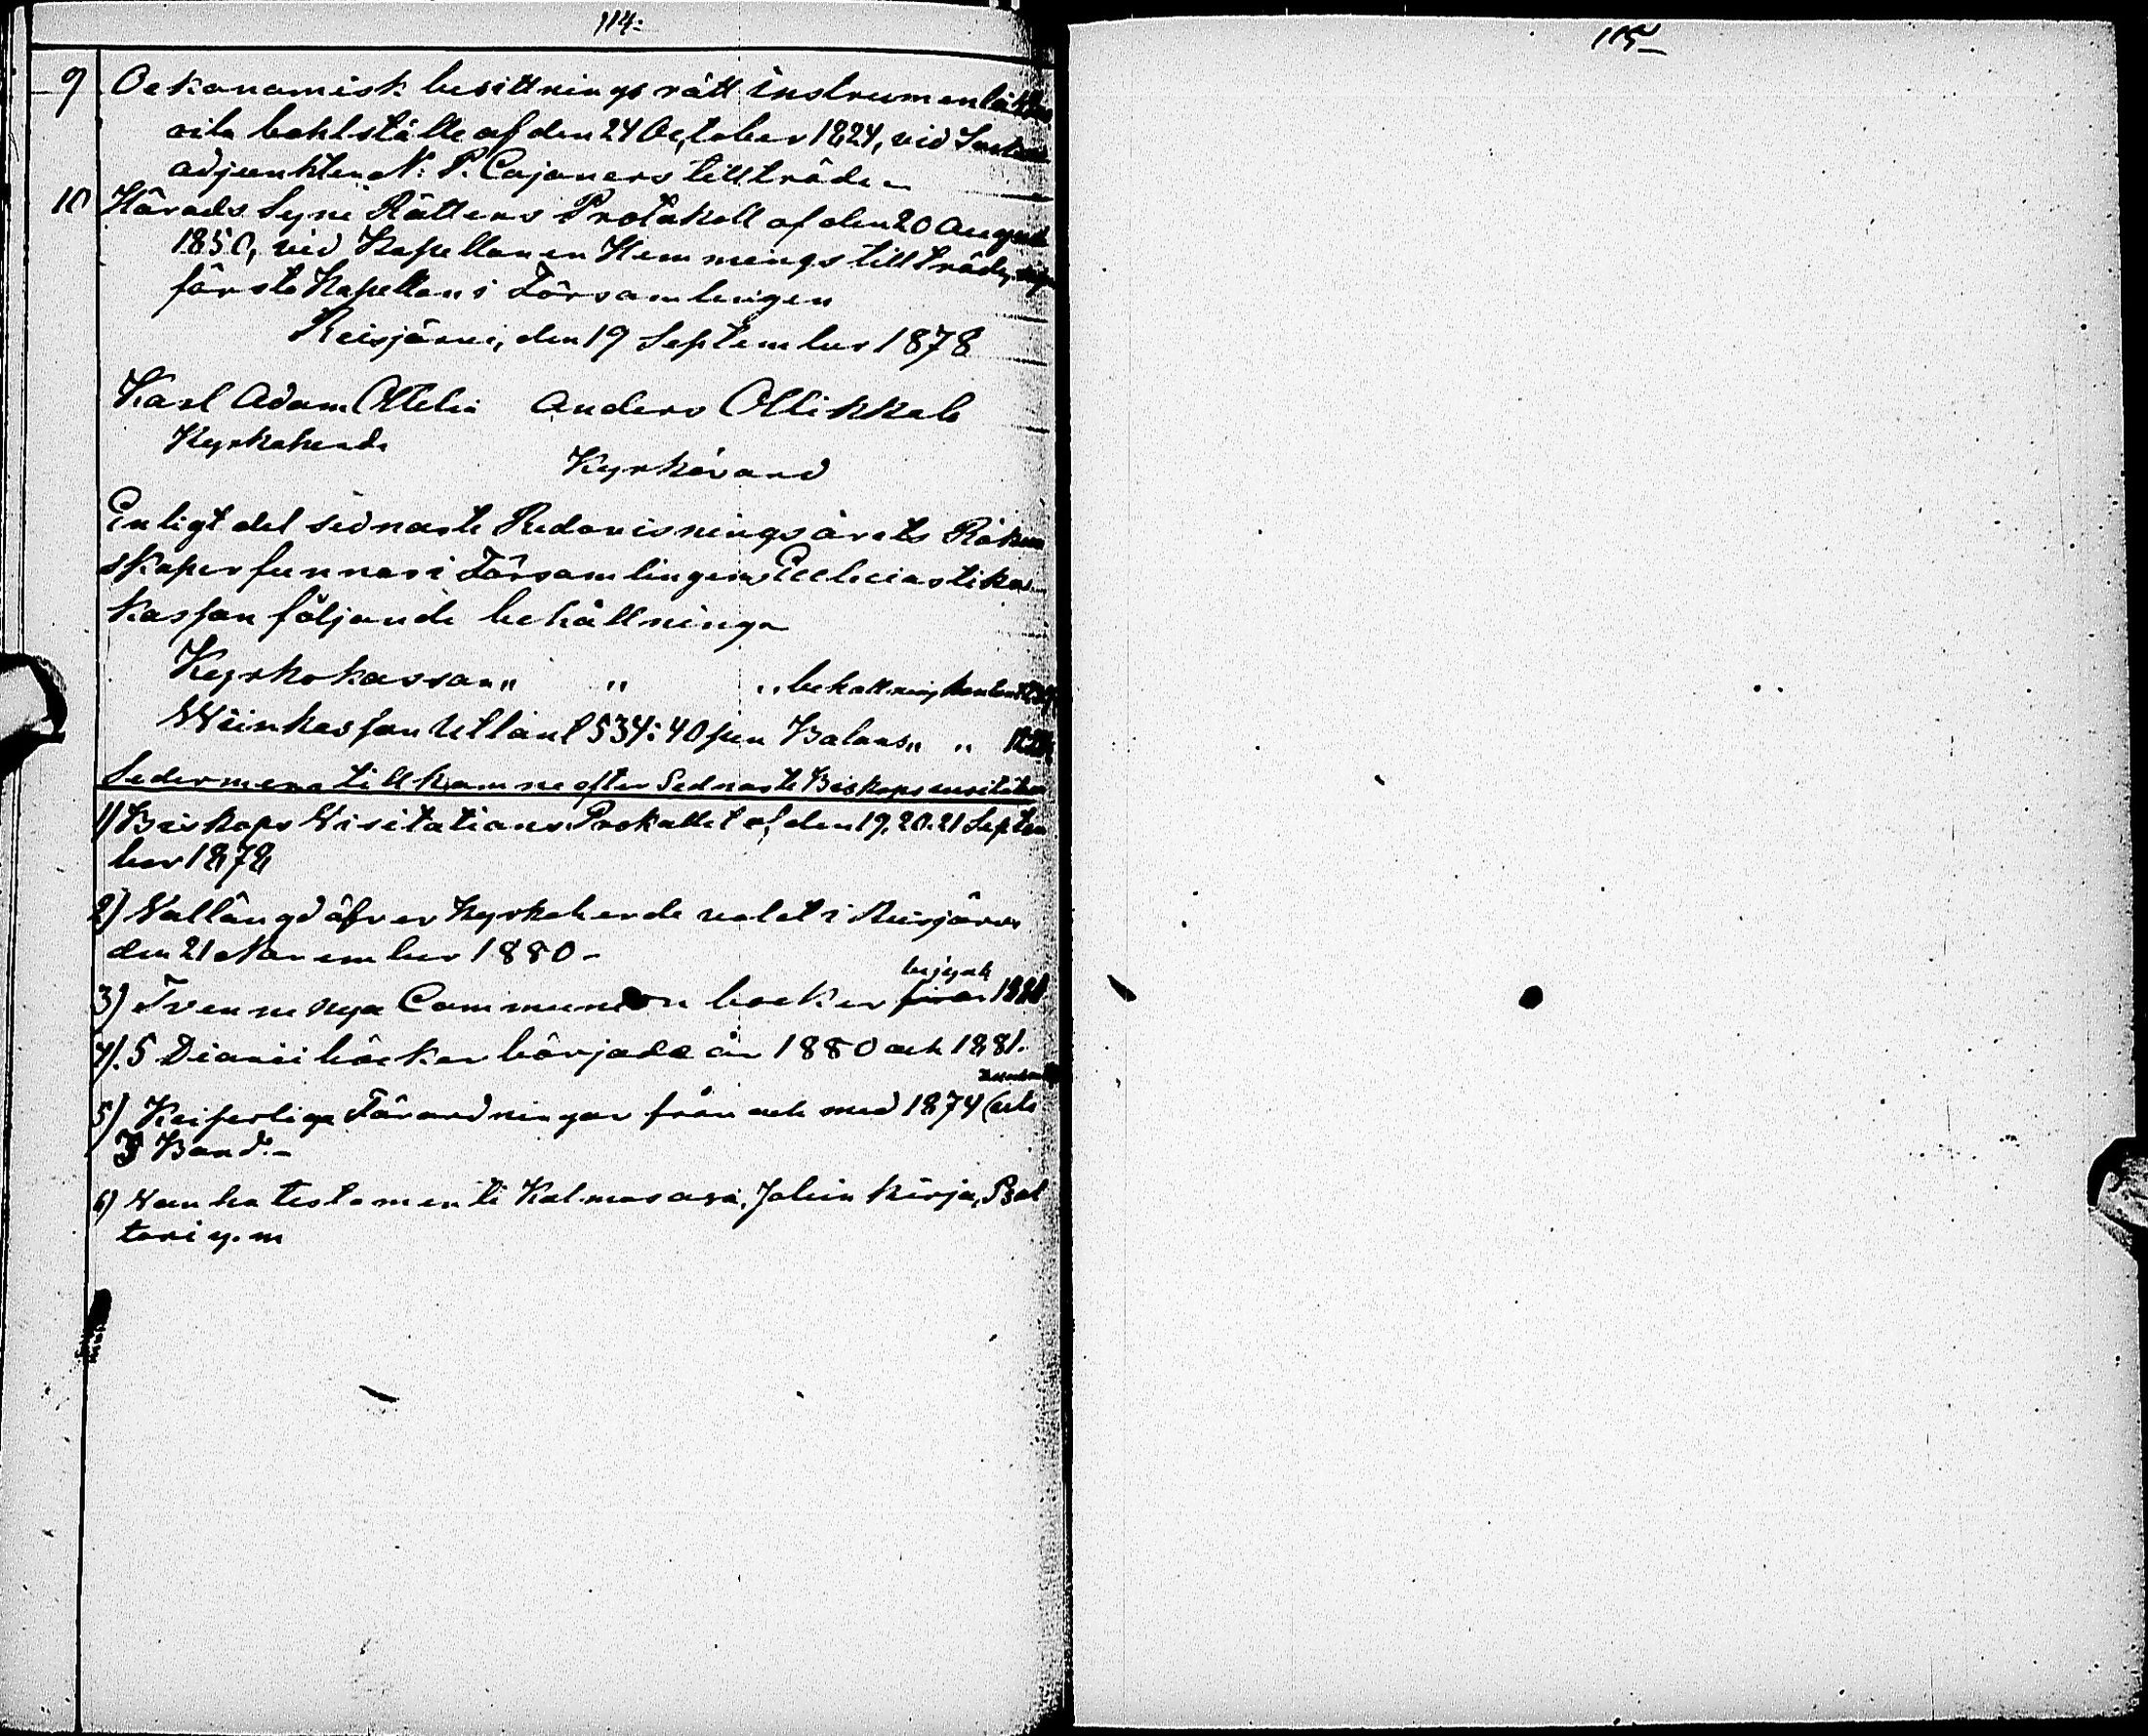 114:
9 Oekonomisk besittnings rätt instrument
bohlställe af den 24 October 1824, vid
adjunkten N: P. Cajaners tillträde
10 Härads Syne Rättens Protokoll af den 20 August
1850, vid Kapellanen Hemmings tillträde,
första Kapellan i Församlingen
Reisjärvi, den 19 September 1878
Karl Adam Ottelin Anders Ollikkala
Kyrkoherde
Kyrkovärd
Enligt det sednaste Redovisningsårets Räken
skaper funnas i Församlingens Ecclesiastika
Kassan följande behållninga
Kyrkokassan „ „ „ behållning
Winkassan Utlånt 534: 40 pen Balans „ „
Sedermera tillkomne efter Sednaste Biskopsvisitation
1) Biskops Visitations Prokollet af den 19, 20. 21 Septem
ber 1878
2) Vallängd öfver Kyrkoherde valet i Reisjärvi
den 21 November 1880 -
3) Tvenne nya Communion böcker
4). 5 Diarii böcker började år 1880 och 1881.
5) Kejserliga Förordningar från och med 1874
3 Band. -
6) Vanha testamenti Kolmas osa, Jaloin Kirja, Psal
tari y. m
115